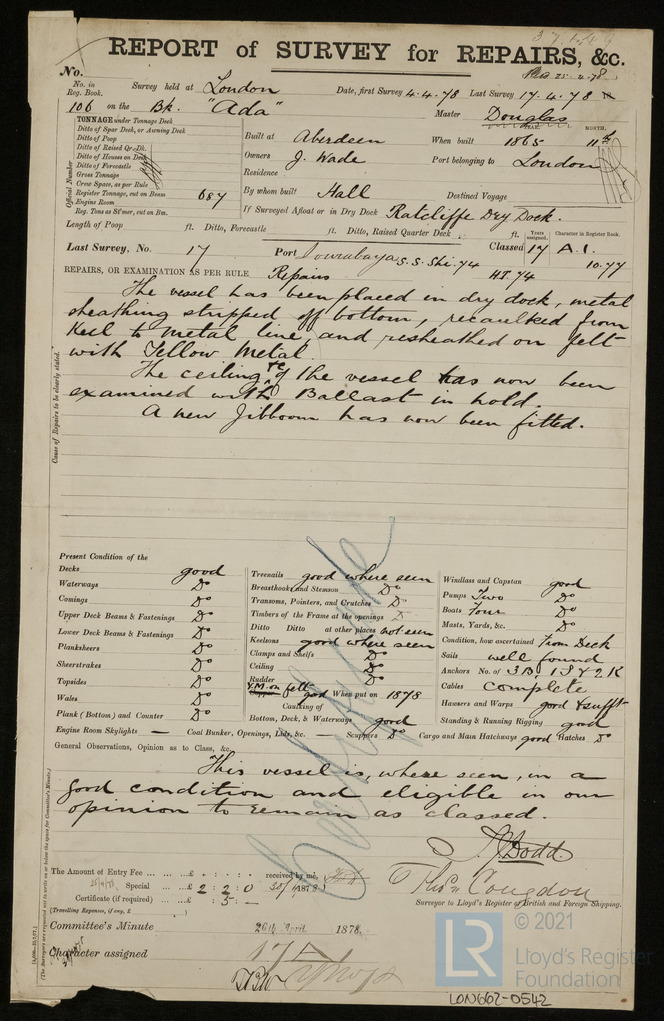 REPORT of SURVEY for REPAIRS, &c.
No.
No. in Reg. Book. Survey held at London Date, first Survey 4.4.78 Last Survey 17.4.78
106 on the Bk. "Ada" Master Douglas
TONNAGE under Tonnage Deck
Ditto of Spar Deck, or Awning Deck
Ditto of Poop
Ditto of Raised Qr. Dk.
Ditto of Houses on Deck
Ditto of Forecastle
Gross Tonnage
Crew Space, as per Rule
Register Tonnage, cut on Beam 687
Engine Room
Reg. Tons as St'mer, cut on Bm.
Official Number
Built at Aberdeen When built 1865 MONTH. 11th
Owners J. Wade Port belonging to London
Residence
By whom built Hall Destined Voyage
If Surveyed Afloat or in Dry Dock Ratcliffe Dry Dock.
Length of Poop ft. Ditto, Forecastle ft. Ditto, Raised Quarter Deck ft. Years assigned. Character in Register Book.
Last Survey, No. 17 Port Sourabaya S.S. Shi. 74 Classed 17 A.1.
H.T. 74 10.77
REPAIRS, OR EXAMINATION AS PER RULE Repairs
The vessel has been placed in dry dock, metal
sheathing stripped off bottom, recaulked from
Keel to metal line, and resheathed on felt
with Yellow Metal.
The ceiling &c of the vessel has now been
examined with Ballast in hold.
A new Jibboom has now been fitted.
Cause of Repairs to be clearly stated.
Present Condition of the
Decks good
Waterways Do
Comings Do
Upper Deck Beams & Fastenings Do
Lower Deck Beams & Fastenings Do
Planksheers Do
Sheerstrakes Do
Topsides Do
Wales Do
Plank (Bottom) and Counter Do
Engine Room Skylights — Coal Bunker, Openings, Lids, &c. — Scuppers Do Cargo and Main Hatchways good Hatches Do
Treenails good where seen
Breasthooks and Stemson Do
Transoms, Pointers, and Crutches Do
Timbers of the Frame at the openings Do
Ditto Ditto at other places not seen
Keelsons good where seen
Clamps and Shelfs Do
Ceiling Do
Rudder Do
Y.M. on felt good When put on 1878
Caulking of
Bottom, Deck, & Waterways good
Windlass and Capstan good
Pumps Two Do
Boats Four Do
Masts, Yards, &c. Do
Condition, how ascertained From Deck
Sails well found
Anchors No. of 3B, 1S & 2K
Cables Complete
Hawsers and Warps good & sufft
Standing & Running Rigging good
General Observations, Opinion as to Class, &c.
This vessel is, where seen, in a
good condition and eligible in our
opinion to remain as classed.
J. Dodd
Thos Congdon
Surveyor to Lloyd's Register of British and Foreign Shipping.
The Amount of Entry Fee ... £ : : received by me,
Special ... £ 2 : 2 : 0
Certificate (if required) ... £ 5 —
(Travelling Expenses, if any, £ )
Committee's Minute 26th April 1878.
Character assigned 17 A
© 2021
LR Lloyd's Register
Foundation
LON662-0542